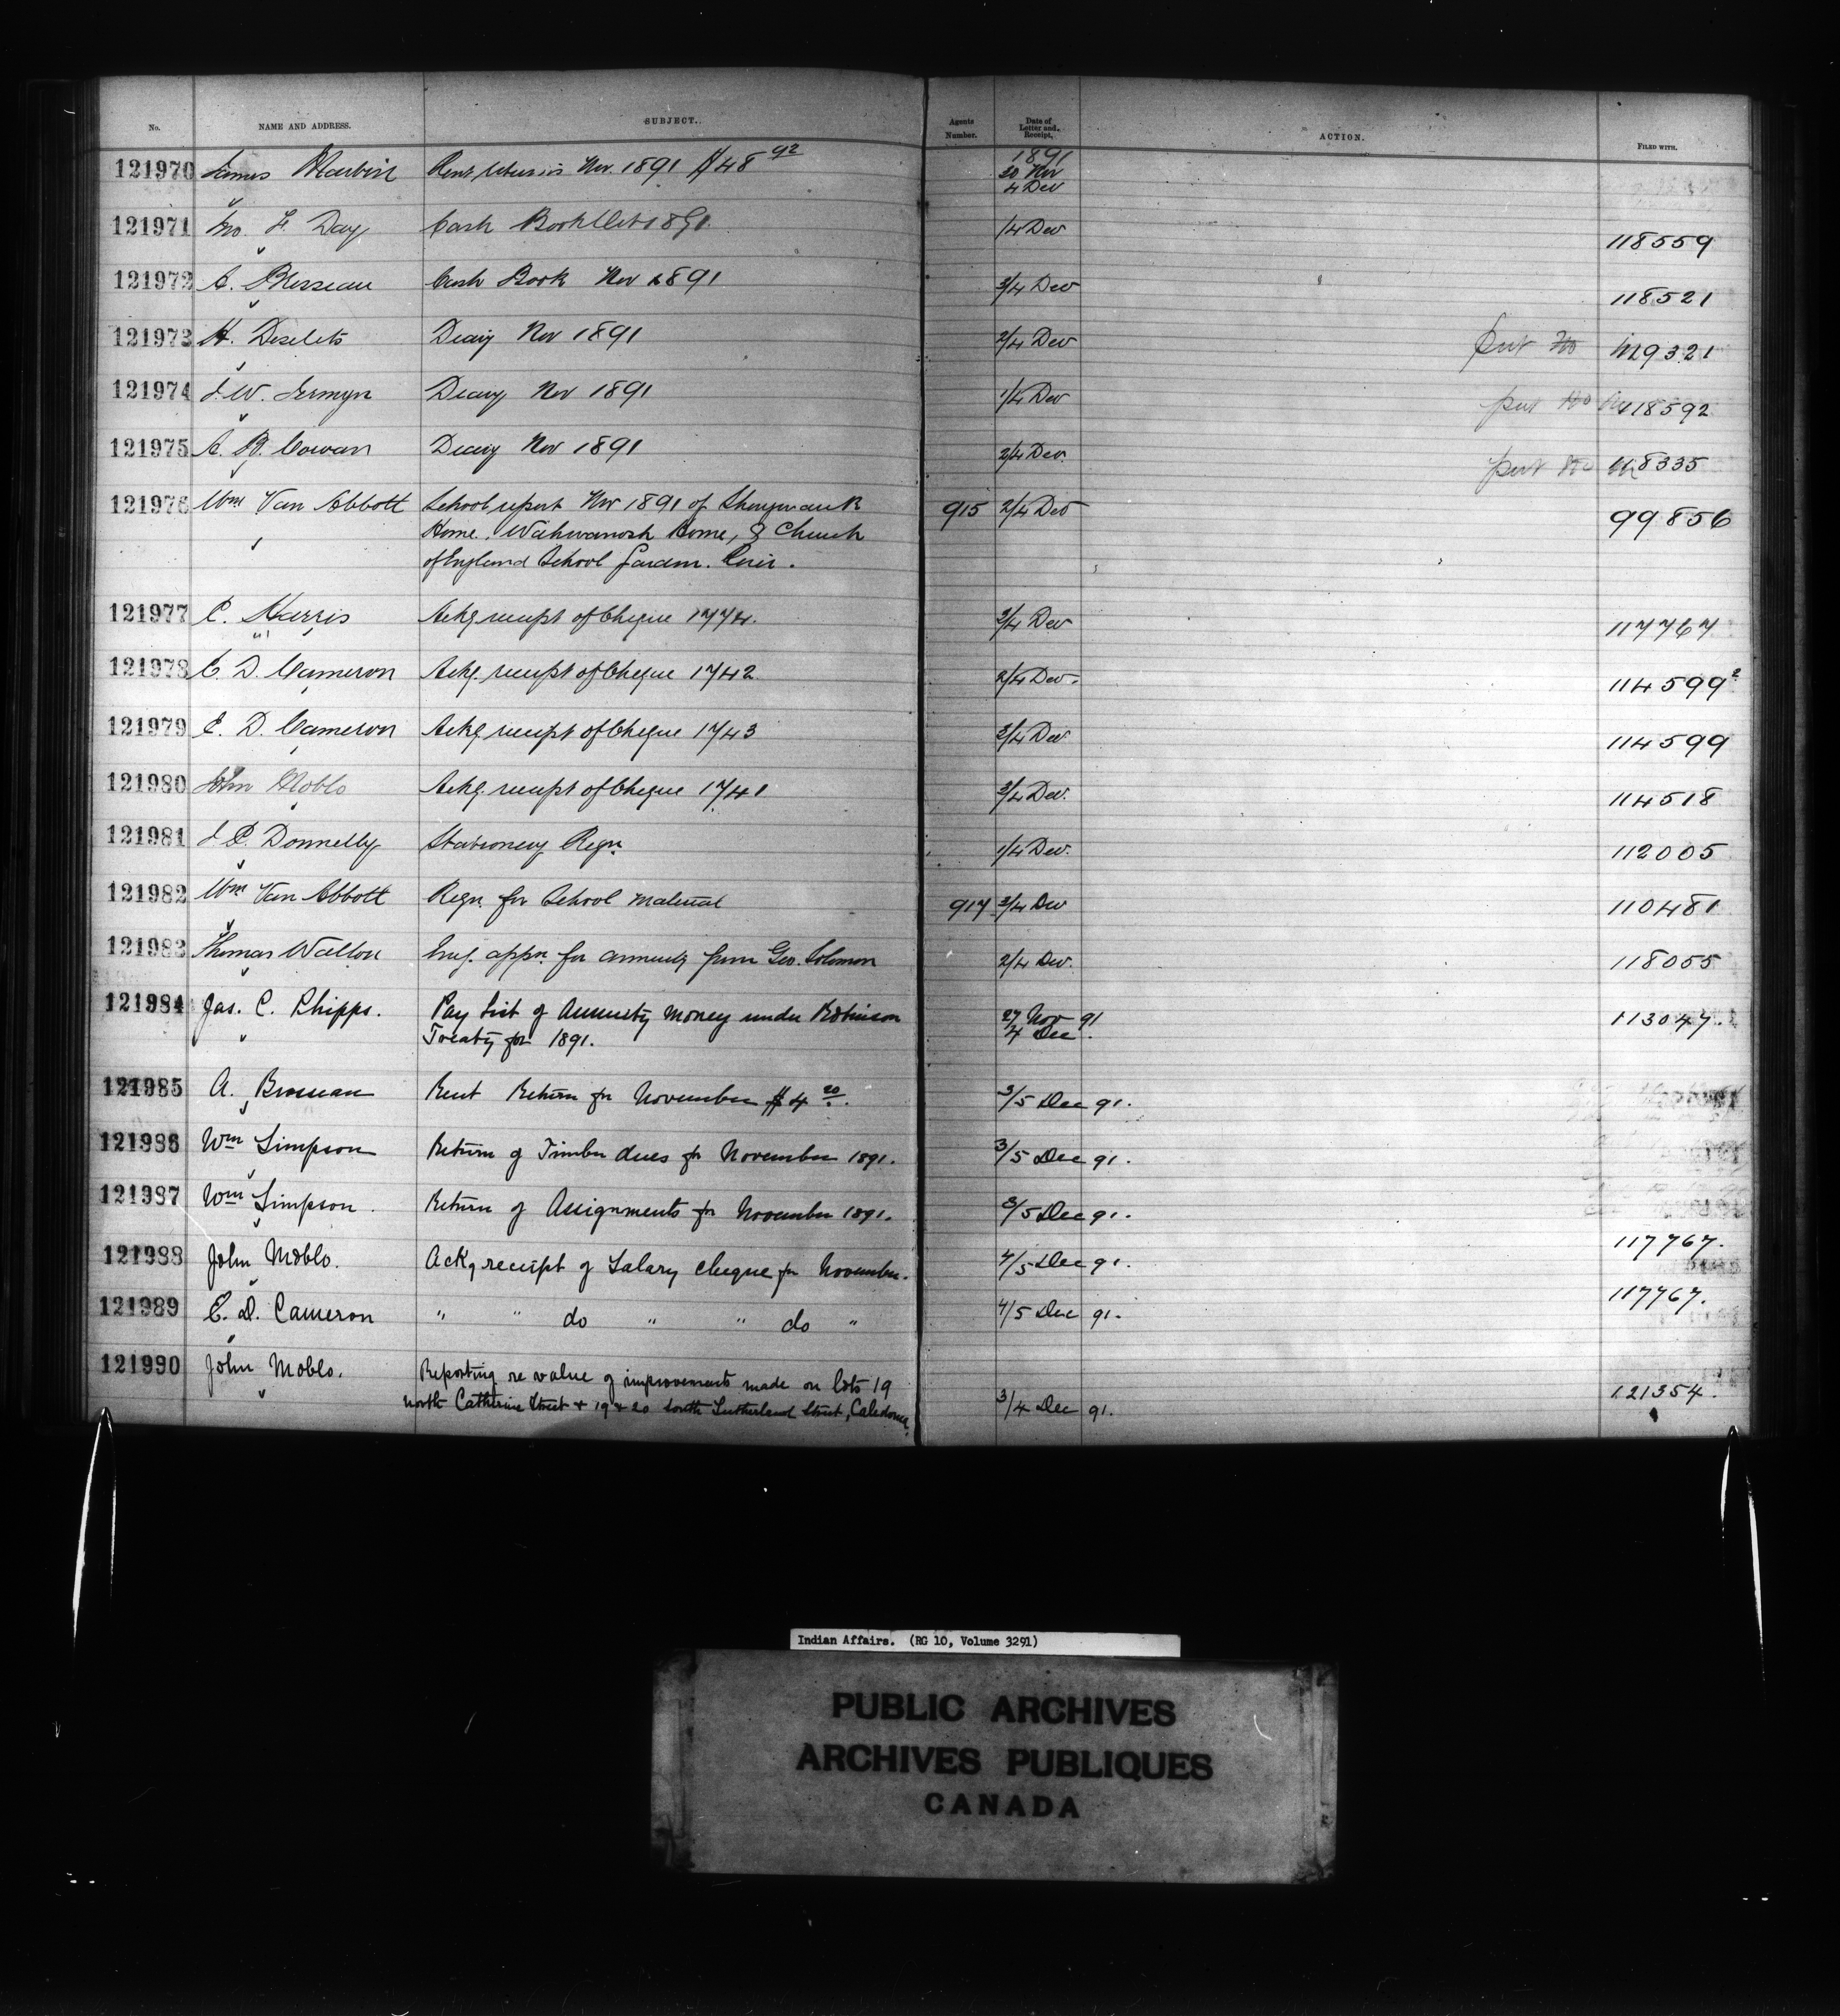 No. NAME AND ADDRESS. SUBJECT. Agents Number. Date of Letter and Receipt. ACTION. FILED WITH.
121970 James Martin Rent returns Nov. 1891 $48 92 1891 20 Nov
4 Dev
121971 Jno F. Day Cash Book Oct 1891. 1/4 Dev 118559
121972 A. Brosseau Cash Book Nov 1891 3/4 Dev 118521
121973 H. Desilets Diary Nov 1891 2/4 Dev put 119321
121974 J. W. Jermyn Diary Nov 1891 1/4 Dev put 118592
121975 A. B. Cowan Diary Nov 1891 2/4 Dev. put 118335
121976 Wm Van Abbott School report Nov 1891 of Shingwauk 915 2/4 Dev 99856
Home, Wahwanosh Home, & Church
of England School Garden River.
121977 C. Harris Ackg receipt of Cheque 1774. 3/4 Dev 117767
121978 E. D. Cameron Ackg. receipt of Cheque 1742. 2/4 Dev. 114599²
121979 E. D. Cameron Ackg receipt of Cheque 1743 3/4 Dev 114599
121980 John Moblo Ackg. receipt of Cheque 1741 3/4 Dev. 114518
121981 J. P. Donnelly Stationery Reqn. 1/4 Dev. 112005
121982 Wm Van Abbott Reqn. for School material 917 3/4 Dev 110481
121983 Thomas Walton appn. for annuity from Geo. Solomon 2/4 Dev. 118055
121984 Jas. C. Phipps. Pay List of Annuity Money under Robinson 27 Nov 91 113047.
Treaty for 1891. 4 Dec.
121985 A. Brosseau Rent Return for November $4 20. 3/5 Dec 91.
121986 Wm Simpson Return of Timber dues for November 1891. 3/5 Dec 91.
121987 Wm Simpson. Return of Assignments for November 1891. 3/5 Dec 91.
121988 John Moblo. Ackg receipt of Salary cheque for November. 4/5 Dec 91. 117767.
121989 E. D. Cameron " " do " " do " 4/5 Dec 91. 117767.
121990 John Moblo. Reporting re value of improvements made on lots 19
north Catherine Street + 19 + 20 South Sutherland Street, Caledonia. 3/4 Dec 91. 121354.
Indian Affairs. (RG 10, Volume 3291)
PUBLIC ARCHIVES
ARCHIVES PUBLIQUES
CANADA